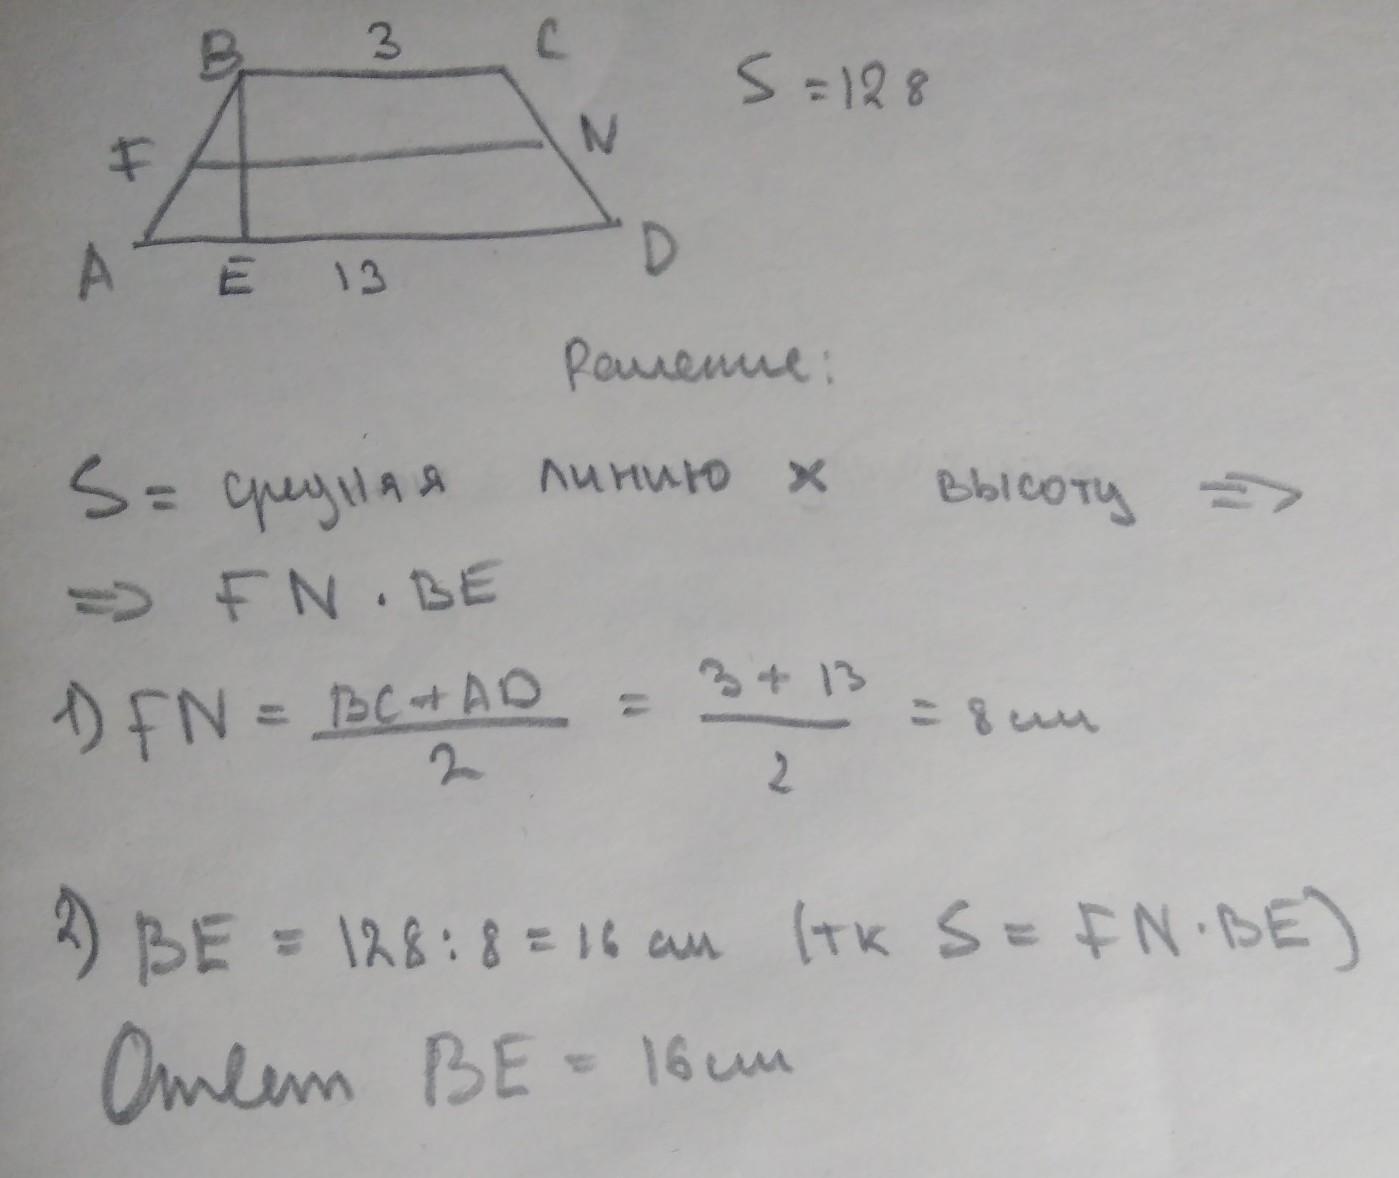 B 3 C
S = 128
F N
A E 13 D
Решение:
S = средняя линию × высоту =>
=> FN . BE
1) FN = BC+AD / 2 = 3 + 13 / 2 = 8 см
2) BE = 128 : 8 = 16 см (тк S = FN · BE)
Ответ BE = 16 см